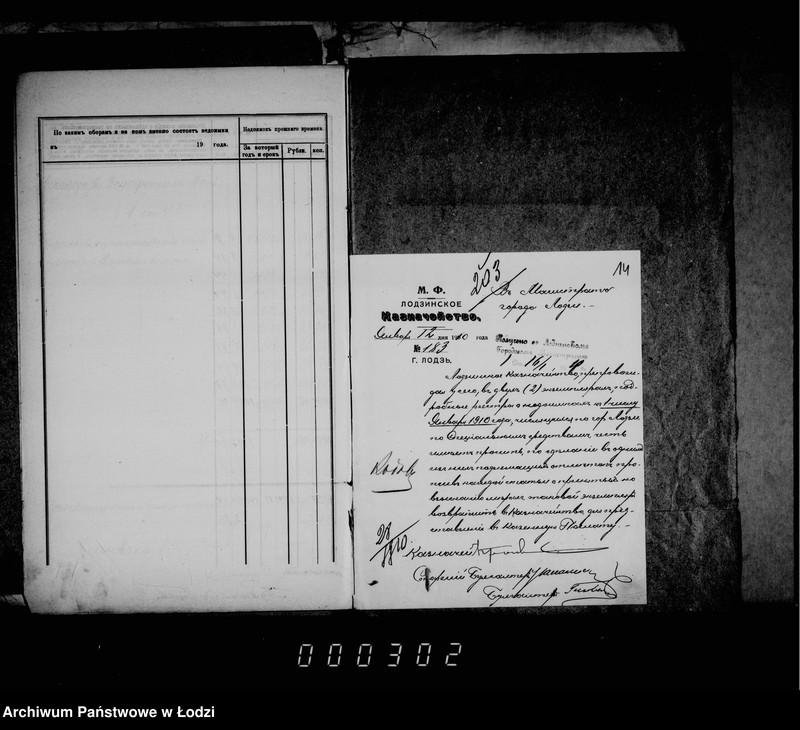 По какимъ сборамъ и на комъ именно состоятъ недоимки
къ 19 года.
Недоимокъ прошлаго времени.
За который годъ и срокъ
Рубли.
коп.
14
203
М. Ф.
ЛОДЗИНСКОЕ
Казначейство.
Января 12 дня 1910 года
№ 183
Г. ЛОДЗЬ.
Въ Магистратъ
города Лодзи.
Получено въ Лодзинскомъ
Городскомъ
16/I
Лодзинское Казначейство, препровож-
дая у сего, въ двухъ (2) экземплярахъ, под-
робные реестры о недоимкахъ къ 1 числу
Января 1910 года, числящихся по гор. Лодзи
по Спеціальнымъ средствамъ, честь
имѣетъ просить, по сдѣланіи въ одномъ
изъ нихъ надлежащихъ отмѣтокъ про-
тивъ каждой статьи о принятыхъ по
взысканію мѣрахъ, таковой экземпляръ
возвратить въ Казначейство для пред-
ставленія въ Казенную Палату.
Казначей
Старшій Бухгалтеръ
Бухгалтеръ
000302
Archiwum Państwowe w Łodzi